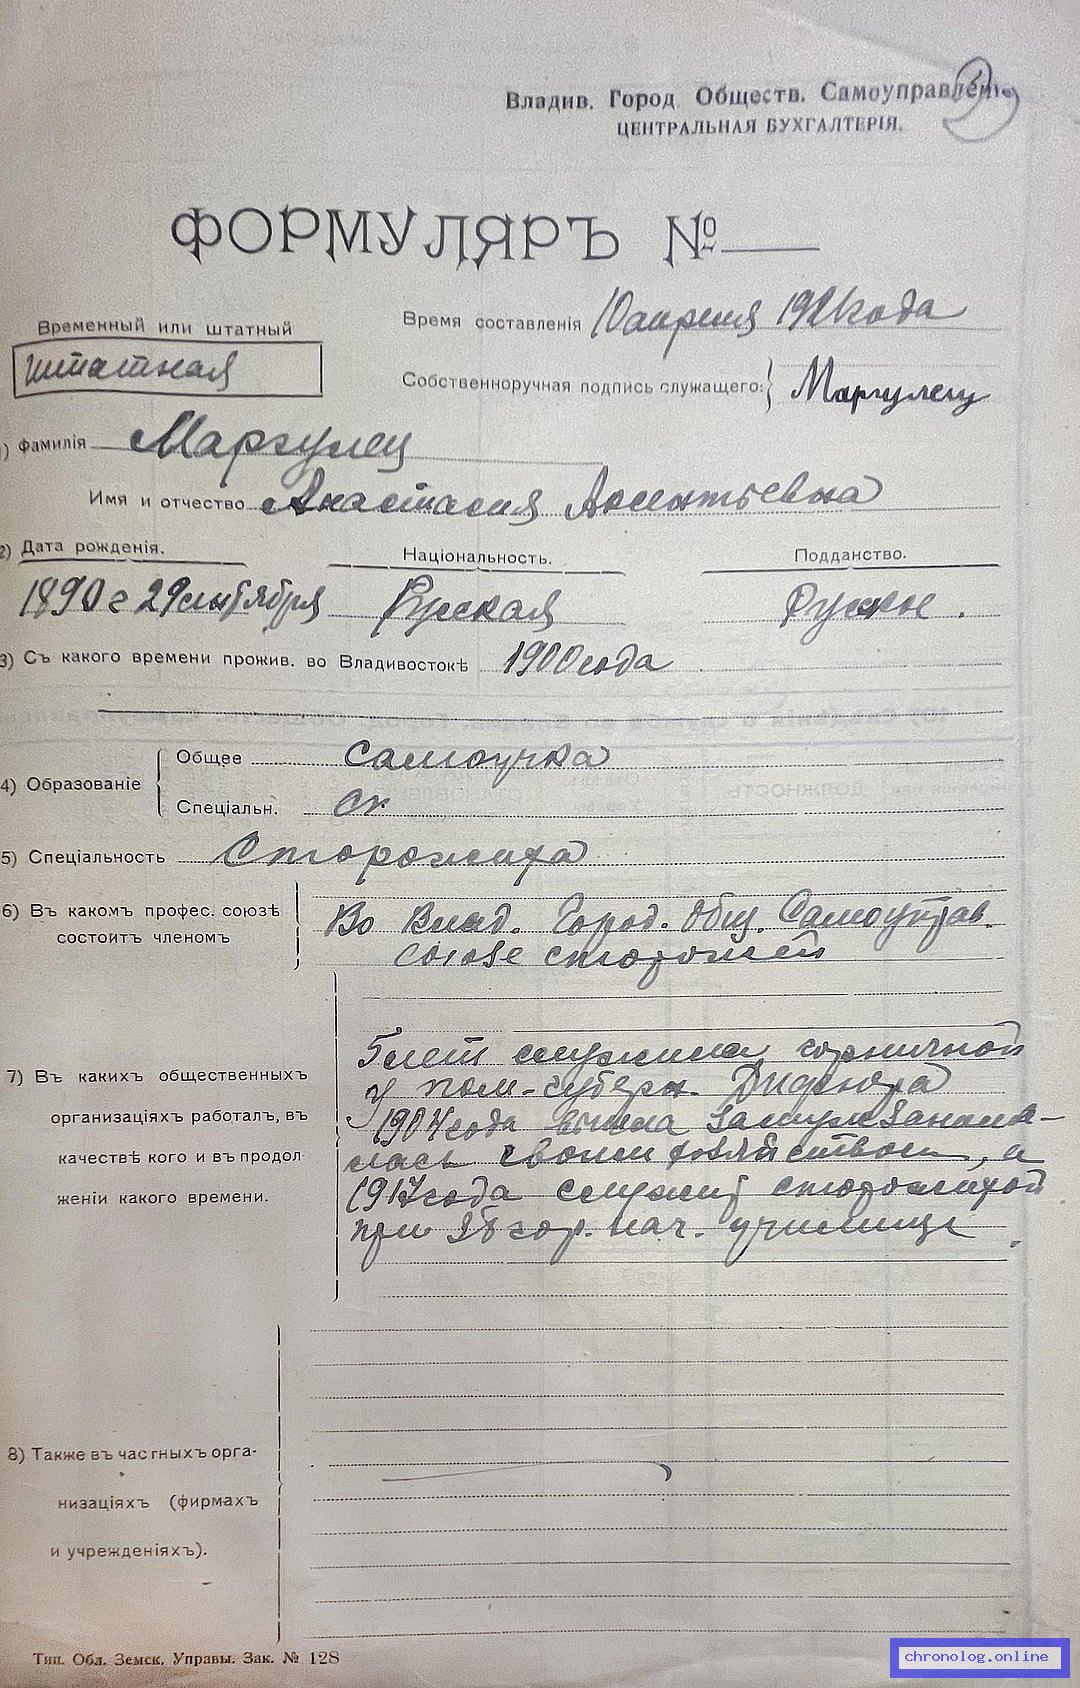 Владив. Город Обществ. Самоуправленіе
ЦЕНТРАЛЬНАЯ БУХГАЛТЕРІЯ.
ФОРМУЛЯРЪ №
Временный или штатный
штатная
Время составленія 10 апреля 1921 года
Собственноручная подпись служащего: Маргулец
1) Фамилія Маргулец
Имя и отчество Анастасия Аксентьевна
2) Дата рожденія. Національность. Подданство.
1890 г 29 сентября Русская Русское.
3) Съ какого времени прожив. во Владивостокѣ 1900 года
4) Образованіе
Общее самоучка
Спеціальн.
5) Спеціальность Сторожиха
6) Въ какомъ профес. союзѣ состоитъ членомъ
Во Влад. Город. Общ. Самоуправ.
союзе сторожей
7) Въ какихъ общественныхъ
организаціяхъ работалъ, въ
качествѣ кого и въ продол
женіи какого времени.
5 лет служила горничной
у пом-губерн.
1904 года вышла замуж занима-
лась своим хозяйством, и
1917 года служит сторожихой
при гор. нач. училище.
8) Также въ частныхъ орга-
низаціяхъ (фирмах
и учрежденіяхъ).
Тип. Обл. Земск. Управы. Зак. № 128
chronolog.online